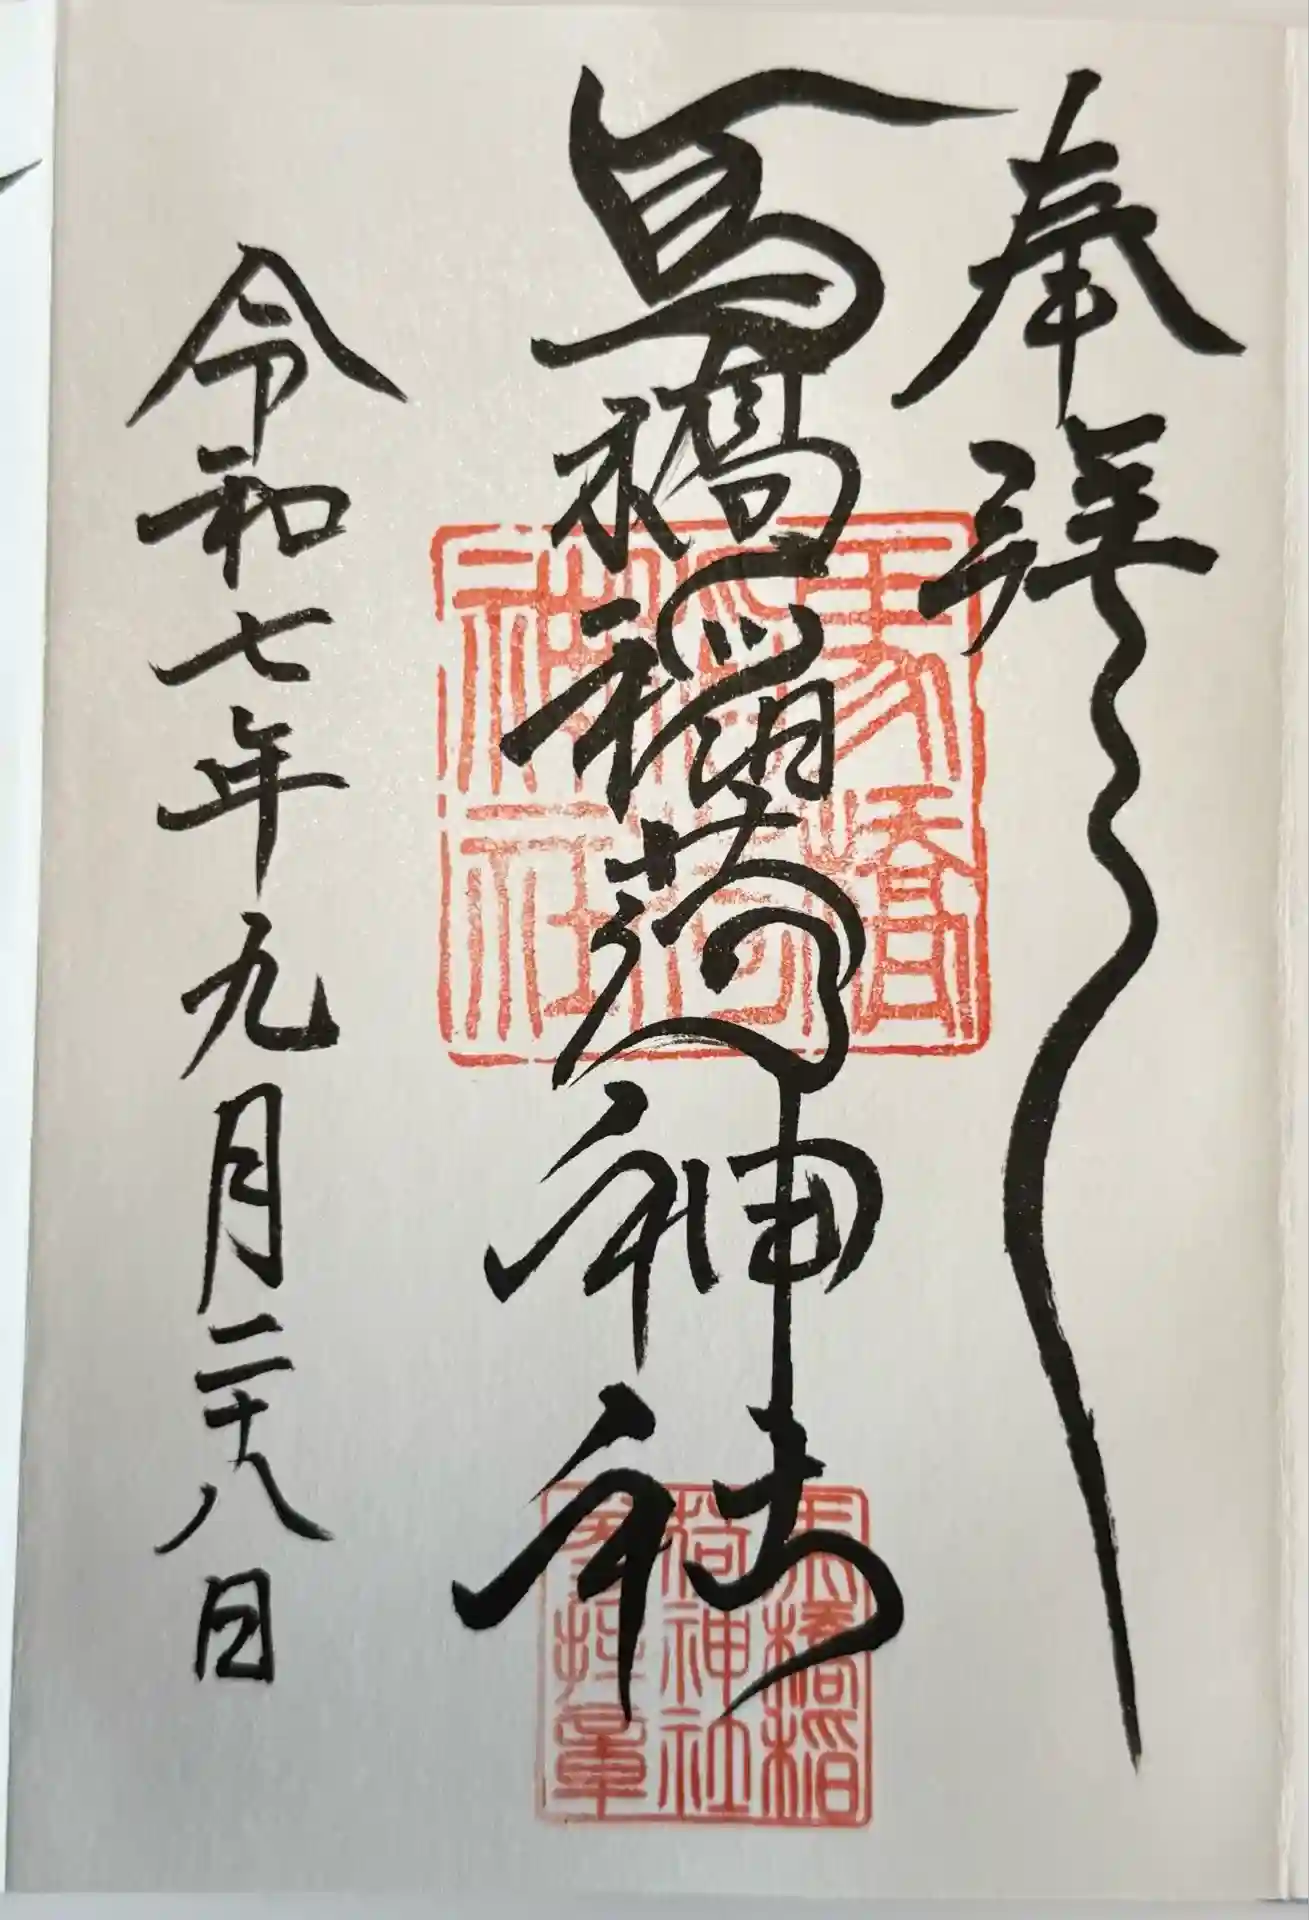 奉拝
馬橋稲荷神社
令和七年九月二十八日
馬橋
稲荷
神社
馬橋稲
荷神社
参拝章